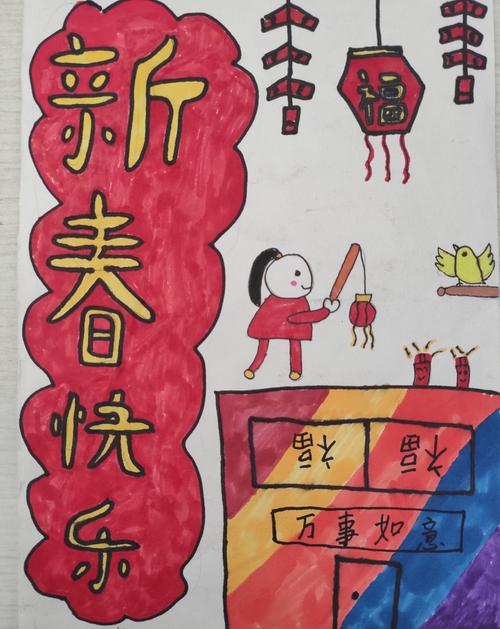 新春快乐
福
福 福
万事如意